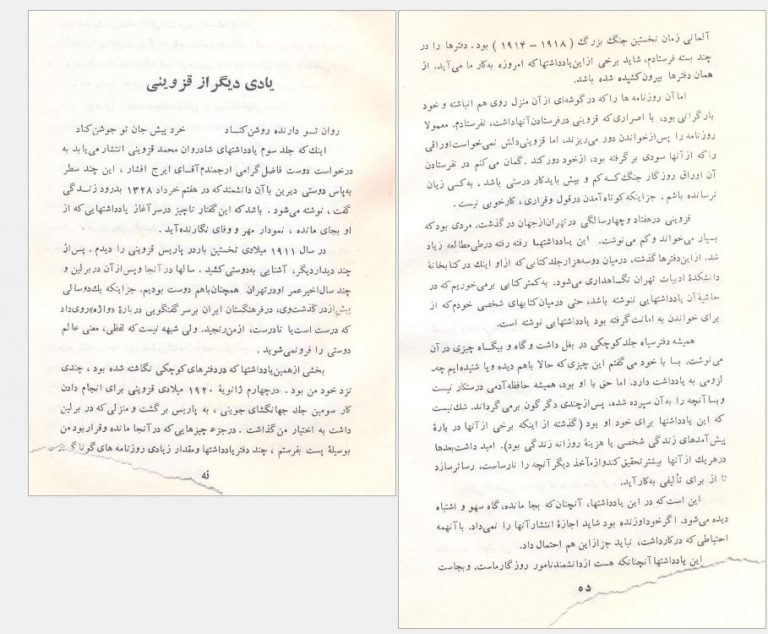 یادی دیگر از قزوینی
روان تو دارنده روشن کناد خرد پیش جان تو جوشن کناد
اینك که جلد سوم یادداشتهای شادروان محمد قزوینی انتشار می‌یابد به
درخواست دوست فاضل گرامی ارجمندم آقای ایرج افشار ، این چند سطر
به‌پاس دوستی دیرین با آن دانشمند که در هفتم خرداد ۱۳۲۸ بدرود زندگی
گفت ، نوشته می‌شود . باشد که این گفتار ناچیز در سر آغاز یادداشتهایی که از
او بجای مانده ، نمودار مهر و وفای نگارنده آید .
در سال ۱۹۱۱ میلادی نخستین بار در پاریس قزوینی را دیدم . پس از
چند دیدار دیگر، آشنایی به‌دوستی کشید . سالها در آنجا و پس از آن در برلین و
چند سال اخیر عمر او در تهران همچنان باهم دوست بودیم. جز اینکه یك دو سالی
پیش از در گذشت وی، در فرهنگستان ایران بر سر گفتگویی در بارهٔ «واژه» روی داد
که درست است یا نادرست، از من رنجید. ولی شبهه نیست که لفظی، معنی عالم
دوستی را فرو نمی‌شوید .
بخشی از همین یادداشتها که در دفترهای کوچکی نگاشته شده بود ، چندی
نزد خود من بود . در چهارم ژانویهٔ ۱۹۲۰ میلادی قزوینی برای انجام دادن
کار سومین جلد جهانگشای جوینی ، به پاریس برگشت و منزلی که در برلین
داشت به اختیار من گذاشت . در جزء چیزهایی که در آنجا مانده و قرار بود من
بوسیلهٔ پست بفرستم ، چند دفتر یادداشتها و مقدار زیادی روزنامه های گوناگون
نه
آلمانی زمان نخستین جنگ بزرگ ( ۱۹۱۸ – ۱۹۱۴ ) بود . دفترها را در
چند بسته فرستادم، شاید برخی از این یادداشتها که امروزه به‌کار ما می‌آید، از
همان دفترها بیرون کشیده شده باشد.
اما آن روزنامه ها را که در گوشه‌ای از آن منزل روی هم انباشته و خود
بار گرانی بود، با اصراری که قزوینی در فرستادن آنها داشت، نفرستادم. معمولا
روزنامه را پس از خواندن دور می‌ریزند، اما قزوینی دلش نمی‌خواست اوراقی
را که از آنها سودی بر گرفته بود، از خود دور کند . گمان می‌کنم در نفرستادن
آن اوراق روزگار جنگ که کم و بیش باید کار درستی باشد ، به‌کسی زیان
نرسانده باشم . جز اینکه کوتاه آمدن در قول و قراری، کار خوبی نیست .
قزوینی در هفتاد و چهار سالگی در تهران از جهان در گذشت. مردی بود که
بسیار می‌خواند و کم می‌نوشت. این یادداشتها رفته رفته در طی مطالعه زیاد
شد. از این دفترها گذشته، در میان دو سه هزار جلد کتابی که از او اینك در کتابخانهٔ
دانشکدهٔ ادبیات تهران نگاهداری می‌شود، به کمتر کتابی بر می‌خوریم که در
حاشیهٔ آن یادداشتهایی ننوشته باشد، حتی در میان کتابهای شخصی خودم که از
برای خواندن به امانت گرفته بود یادداشتهایی نوشته است.
همیشه دفتر سیاه جلد کوچکی در بغل داشت و گاه و بیگاه چیزی در آن
می‌نوشت. بسا با خود می‌گفتم این چیزی که حالا باهم دیده و یا شنیده‌ایم چه
لزومی به یادداشت دارد. اما حق با او بود، همیشه حافظهٔ آدمی درستکار نیست
و بسا آنچه را به آن سپرده شده، پس از چندی دگرگون برمی‌گرداند. شك نیست
که این یادداشتها برای خود او بود (گذشته از اینکه برخی از آنها در بارهٔ
پیش آمدهای زندگی شخصی یا هزینهٔ روزانه زندگی بود). امید داشت بعدها
در هریك از آنها بیشتر تحقیق کند و از مآخذ دیگر آنچه را نارساست، رساتر سازد
تا از برای تألیفی به‌کار آید.
این است که در این یادداشتها، آنچنان که بجا مانده، گاه سهو و اشتباه
دیده می‌شود. اگر خداوندش زنده بود شاید اجازهٔ انتشار آنها را نمی‌داد. با آنهمه
احتیاطی که در کار داشت، نباید جز از این هم احتمال داد.
این یادداشتها آنچنانکه هست از دانشمند نامور روزگار ماست، و بجاست
ده